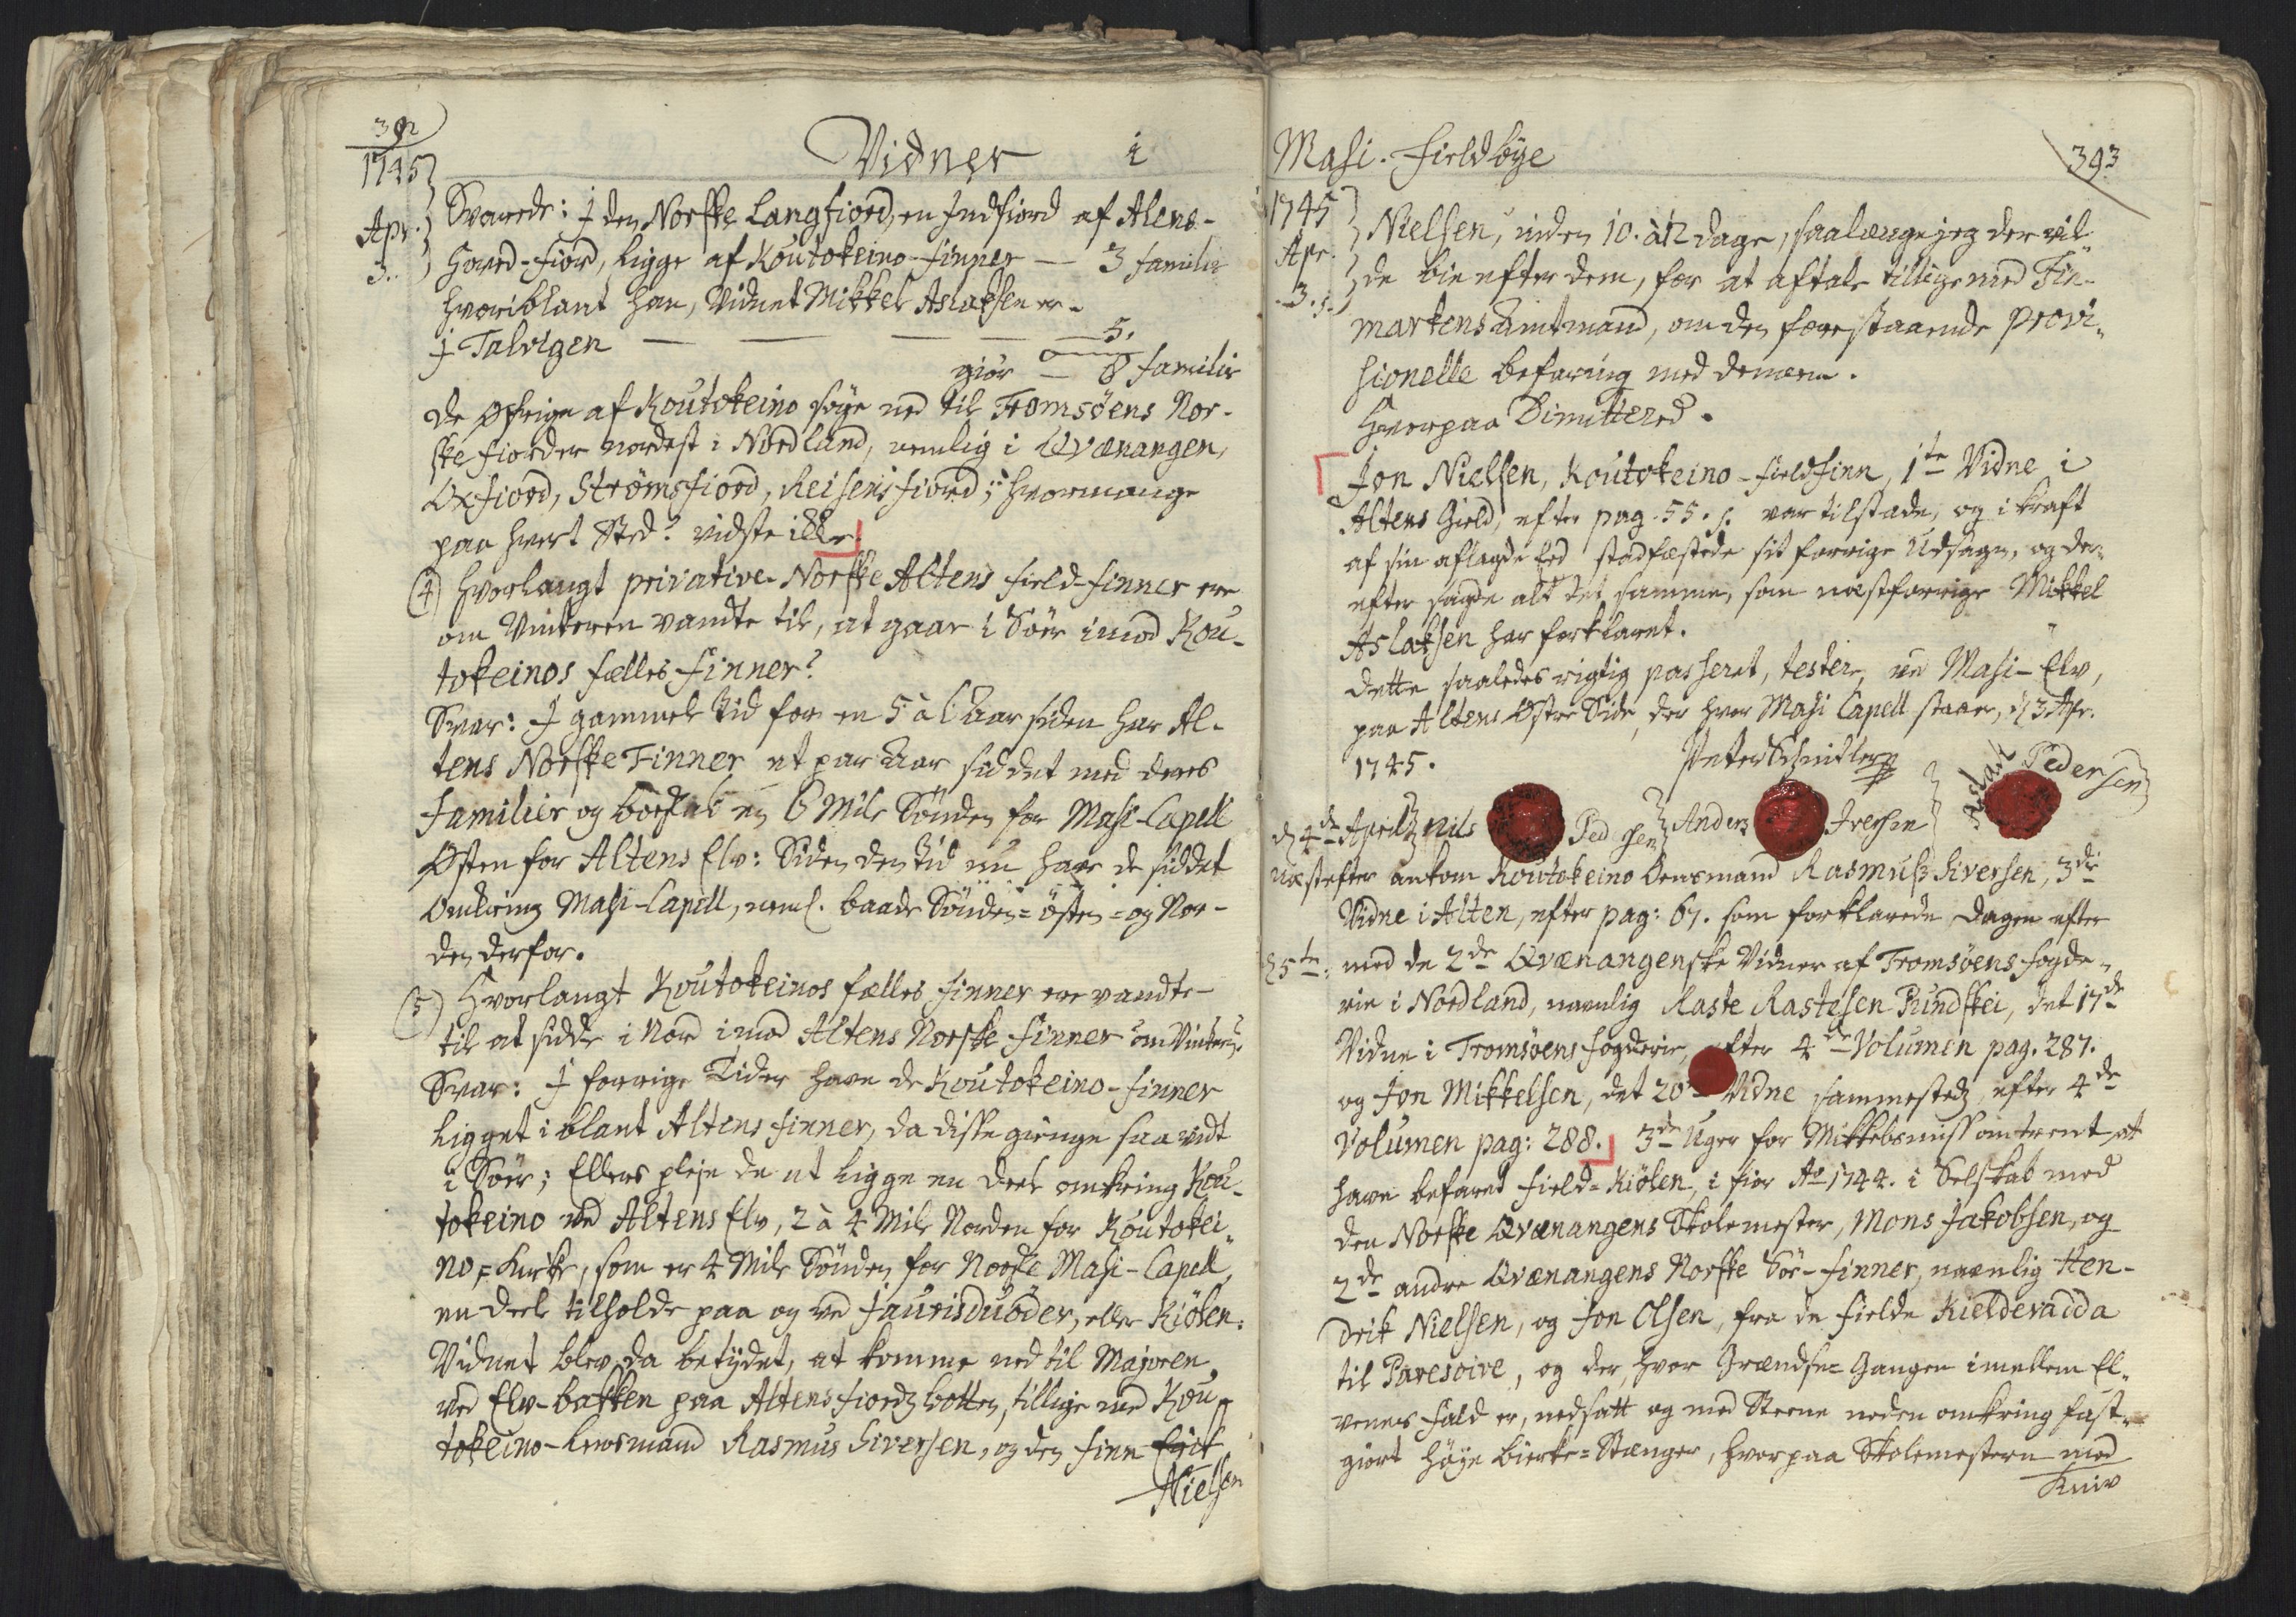 392
Vidner i
1745
Apr.
3.
Svarede: J den Norske Langfiord, en Indfiord af Altens-
Hoved-Fiord, ligge af Koutokeino-Finner — 3 familier
hvoriblant han, Vidnet Mikkel Aslaksen er.
J Talvigen — — — — 5.
giör — 8 familier
De Øfrige af Koutokeino söge ned til Tromsöens Nor-
ske Fiorder nordest i Nordland, nemlig i Qvænangen,
Oxfiord, Strömsfiord, Reisensfiord; hvormange
paa hvert Sted? vidste ikke.
(4) Hvorlangt privative Norske Altens Field-Finner ere
om Vinteren vandte til, at gaae i Sör imod Kou-
tokeinos fælles Finner?
Svar: J gammel tid for en 5 à 6 Aar siden har Al-
tens Norske Finner et par Aar siddet med deres
Familier og boeskab en 6 Mile Sönden for Masi-Capell
Østen for Altens Elv: Siden den tid nu have de siddet
omkring Masi-Capell, neml. baade Sönden= östen= og Nor-
den derfor.
(5) Hvorlangt Koutokeinos fælles Finner ere vandte
til at sidde i Nord imod Altens Norske Finner om Vinteren?
Svar: J forrige Tider have de Koutokeino-Finner
ligget i blant Altens Finner, da disse gienge saa vidt
i Sör; Ellers pleje de at ligge en deel omkring Kou-
tokeino ved Altens Elv, 2 à 4 Mile Norden for Koutokei-
no=Kirke, som er 4 Mile Sönden for Norske Masi-Capell,
en deel tilholde paa og ved Jaurisduöder, eller Kiölen:
Vidnet blev da betydet, at komme ned til Majoren
ved Elv-bakken paa Altens fiordz botten, tillige med Kou-
tokeino-Lensmand Rasmus Siversen, og den Finn Erik
Nielsen
Masi-Fieldbÿe
393
1745
Apr.
3.
Nielsen, inden 10. à 12 dage, saalænge jeg der vil-
de bie efter dem, for at aftale tillige med Fin-
markens Amtmand, om den forestaaende provi-
sionelle befaring med dennem.
Hvorpaa Dimittered.
Jon Nielsen, Koutokeino-fieldfinn, 1te Vidne i
Altens Gield, efter pag. 55. var tilstæde, og i kraft
af sin aflagde Eed stadfæstede sit forrige Udsagn, og der-
efter sagde alt det samme, som næstforrige Mikkel
Aslaksen har forklaret.
Dette saaledes rigtig passeret, testere, ved Masi-Elv,
paa Altens Østre Side, der hvor Masi Capell staar, d. 3 Apr.
1745.
Peter Schnitler
d 4de April Nils Pedersen Anders Iversen Aslak Pedersen
næstefter ankom Koutokeino Lensmand Rasmus Siversen, 3die
Vidne i Alten, efter pag: 67. som forklarede Dagen efter
d 5te: med de 2de Qvænangenske Vidner af Tromsöens fogde-
rie i Nordland, navnlig Raste Rastesen Pundskei, det 17de
Vidne i Tromsöens fogderie, efter 4de Volumen pag. 287.
og Jon Mikkelsen, det 20de Vidne sammestedz, efter 4de
Volumen pag: 288. 3de Uger for Mikkelsmiss omtrent at
have befaret Field=Kiölen, i fior Ao 1744. i Selskab med
den Norske Qvænangens Skolemester, Mons Jakobsen, og
2de andre Qvænangens Norske Söe-Finner, navnlig Hen-
drik Nielsen, og Jon Olsen, fra de Fielde Kieldevadda
til Paresoive, og der, hvor Grændse=Gangen imellem El-
venes fald er, nedsatt og med Steene neden omkring fast-
giort höye bierke=Stænger, hvorpaa Skolemesteren med
Kniv